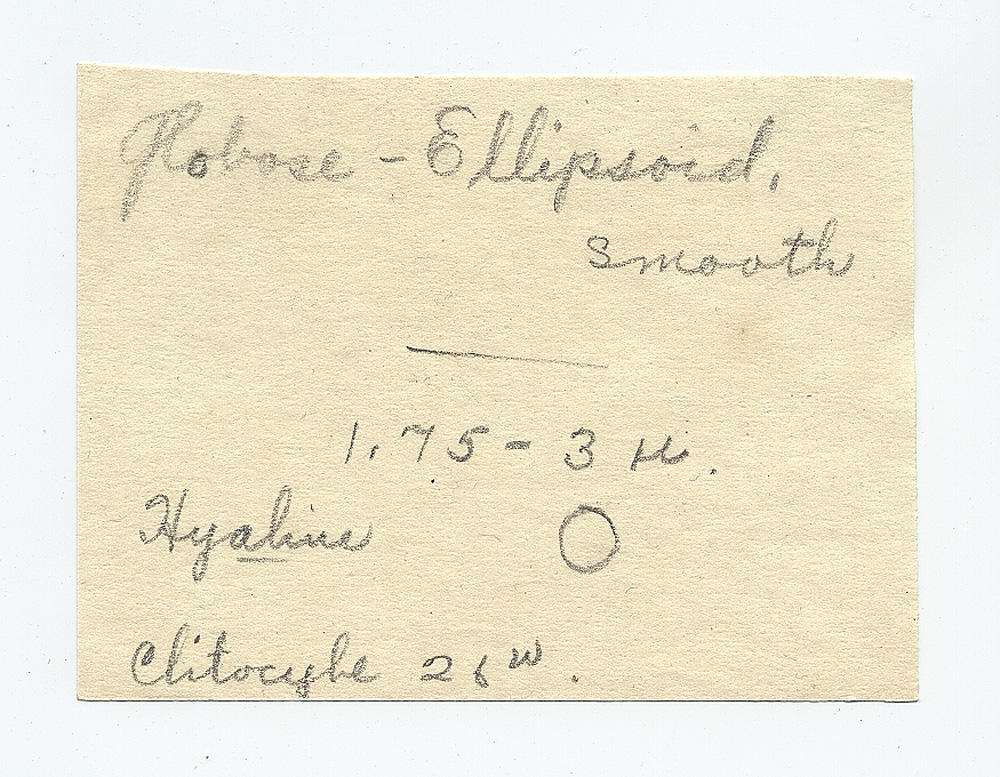 Globose - Ellipsoid,
smooth
1.75 - 3 µ.
Hyaline
Clitocybe 26 w.